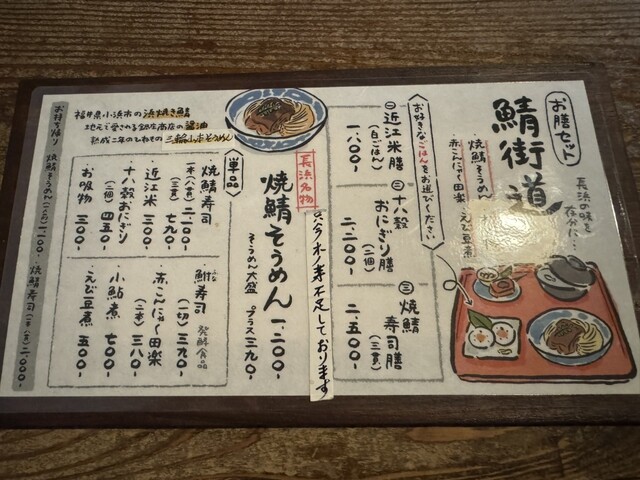 お膳セット
鯖街道
長浜の味を
存分に…
焼鯖そうめん
赤こんにゃく田楽・えび豆煮
お好きなごはんをお選びください
㊀近江米膳
(白ごはん)
一、八〇〇-
㊁十八穀
おにぎり膳
(二個)
二、二〇〇-
㊂焼鯖
寿司膳
(三貫)
二、五〇〇-
只今木ノ芽不足しております
福井県小浜市の浜焼き鯖
地元で愛される鍋庄商店の醤油
熟成二年のひねもの三輪山本そうめん
長浜名物
焼鯖そうめん 一、二〇〇-
そうめん大盛 プラス三九〇-
単品
・焼鯖寿司
一本(八貫) 二、二〇〇-
(三貫) 七九〇-
・近江米 三〇〇-
・十八穀おにぎり
(二個) 四五〇-
・お吸物 三〇〇-
・鮒寿司 発酵食品
(一切) 三九〇-
・赤こんにゃく田楽
(二本) 三八〇-
・小鮎煮 七〇〇-
・えび豆煮 五〇〇-
お持ち帰り